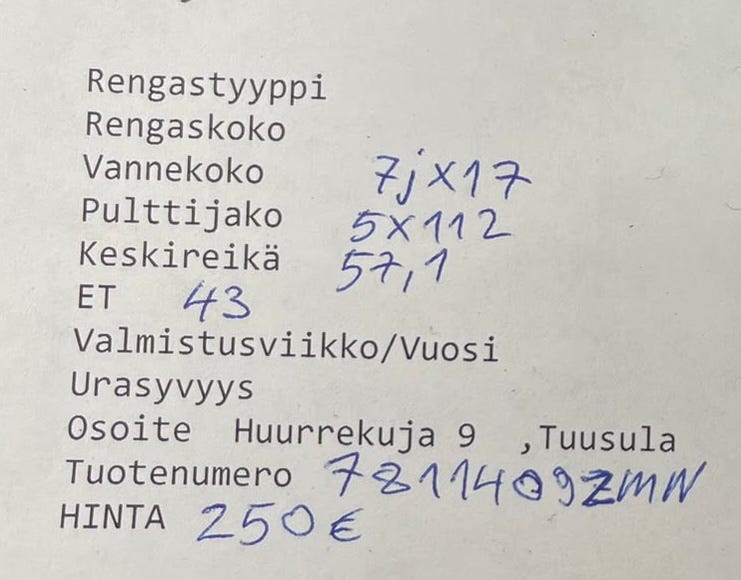 Rengastyyppi
Rengaskoko
Vannekoko 7jx17
Pulttijako 5x112
Keskireikä 57,1
ET 43
Valmistusviikko/Vuosi
Urasyvyys
Osoite Huurrekuja 9 ,Tuusula
Tuotenumero 7811409ZMW
HINTA 250€